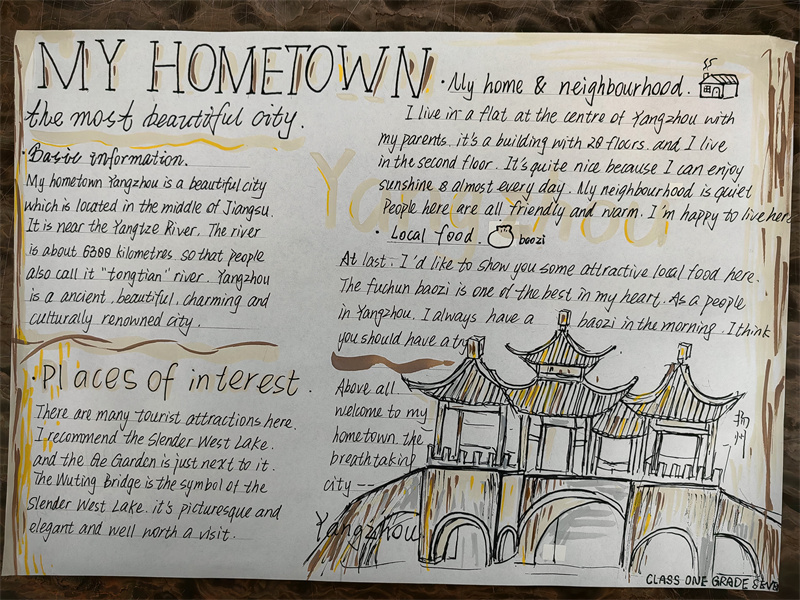 MY HOMETOWN
the most beautiful city.
· Basic information.
My hometown Yangzhou is a beautiful city
which is located in the middle of Jiangsu.
It is near the Yangtze River. The river
is about 6300 kilometres. so that people
also call it "tongtian" river. Yangzhou
is a ancient, beautiful, charming and
culturally renowned city.
· Places of interest.
There are many tourist attractions here.
I recommend the Slender West Lake.
and the Ge Garden is just next to it.
The Wuting Bridge is the symbol of the
Slender West Lake. it's picturesque and
elegant and well worth a visit.
· My home & neighbourhood.
I live in a flat at the centre of Yangzhou with
my parents. it's a building with 28 floors. and I live
in the second floor. It's quite nice because I can enjoy
sunshine & almost every day. My neighbourhood is quiet
People here are all friendly and warm. I'm happy to live here
Yangzhou
· Local food.
baozi
At last. I'd like to show you some attractive local food here.
The fuchun baozi is one of the best in my heart. As a people
in Yangzhou. I always have a baozi in the morning. I think
you should have a try
Above all
welcome to my
hometown. the
breathtaking
city --
Yangzhou.
扬州
CLASS ONE GRADE SEVEN